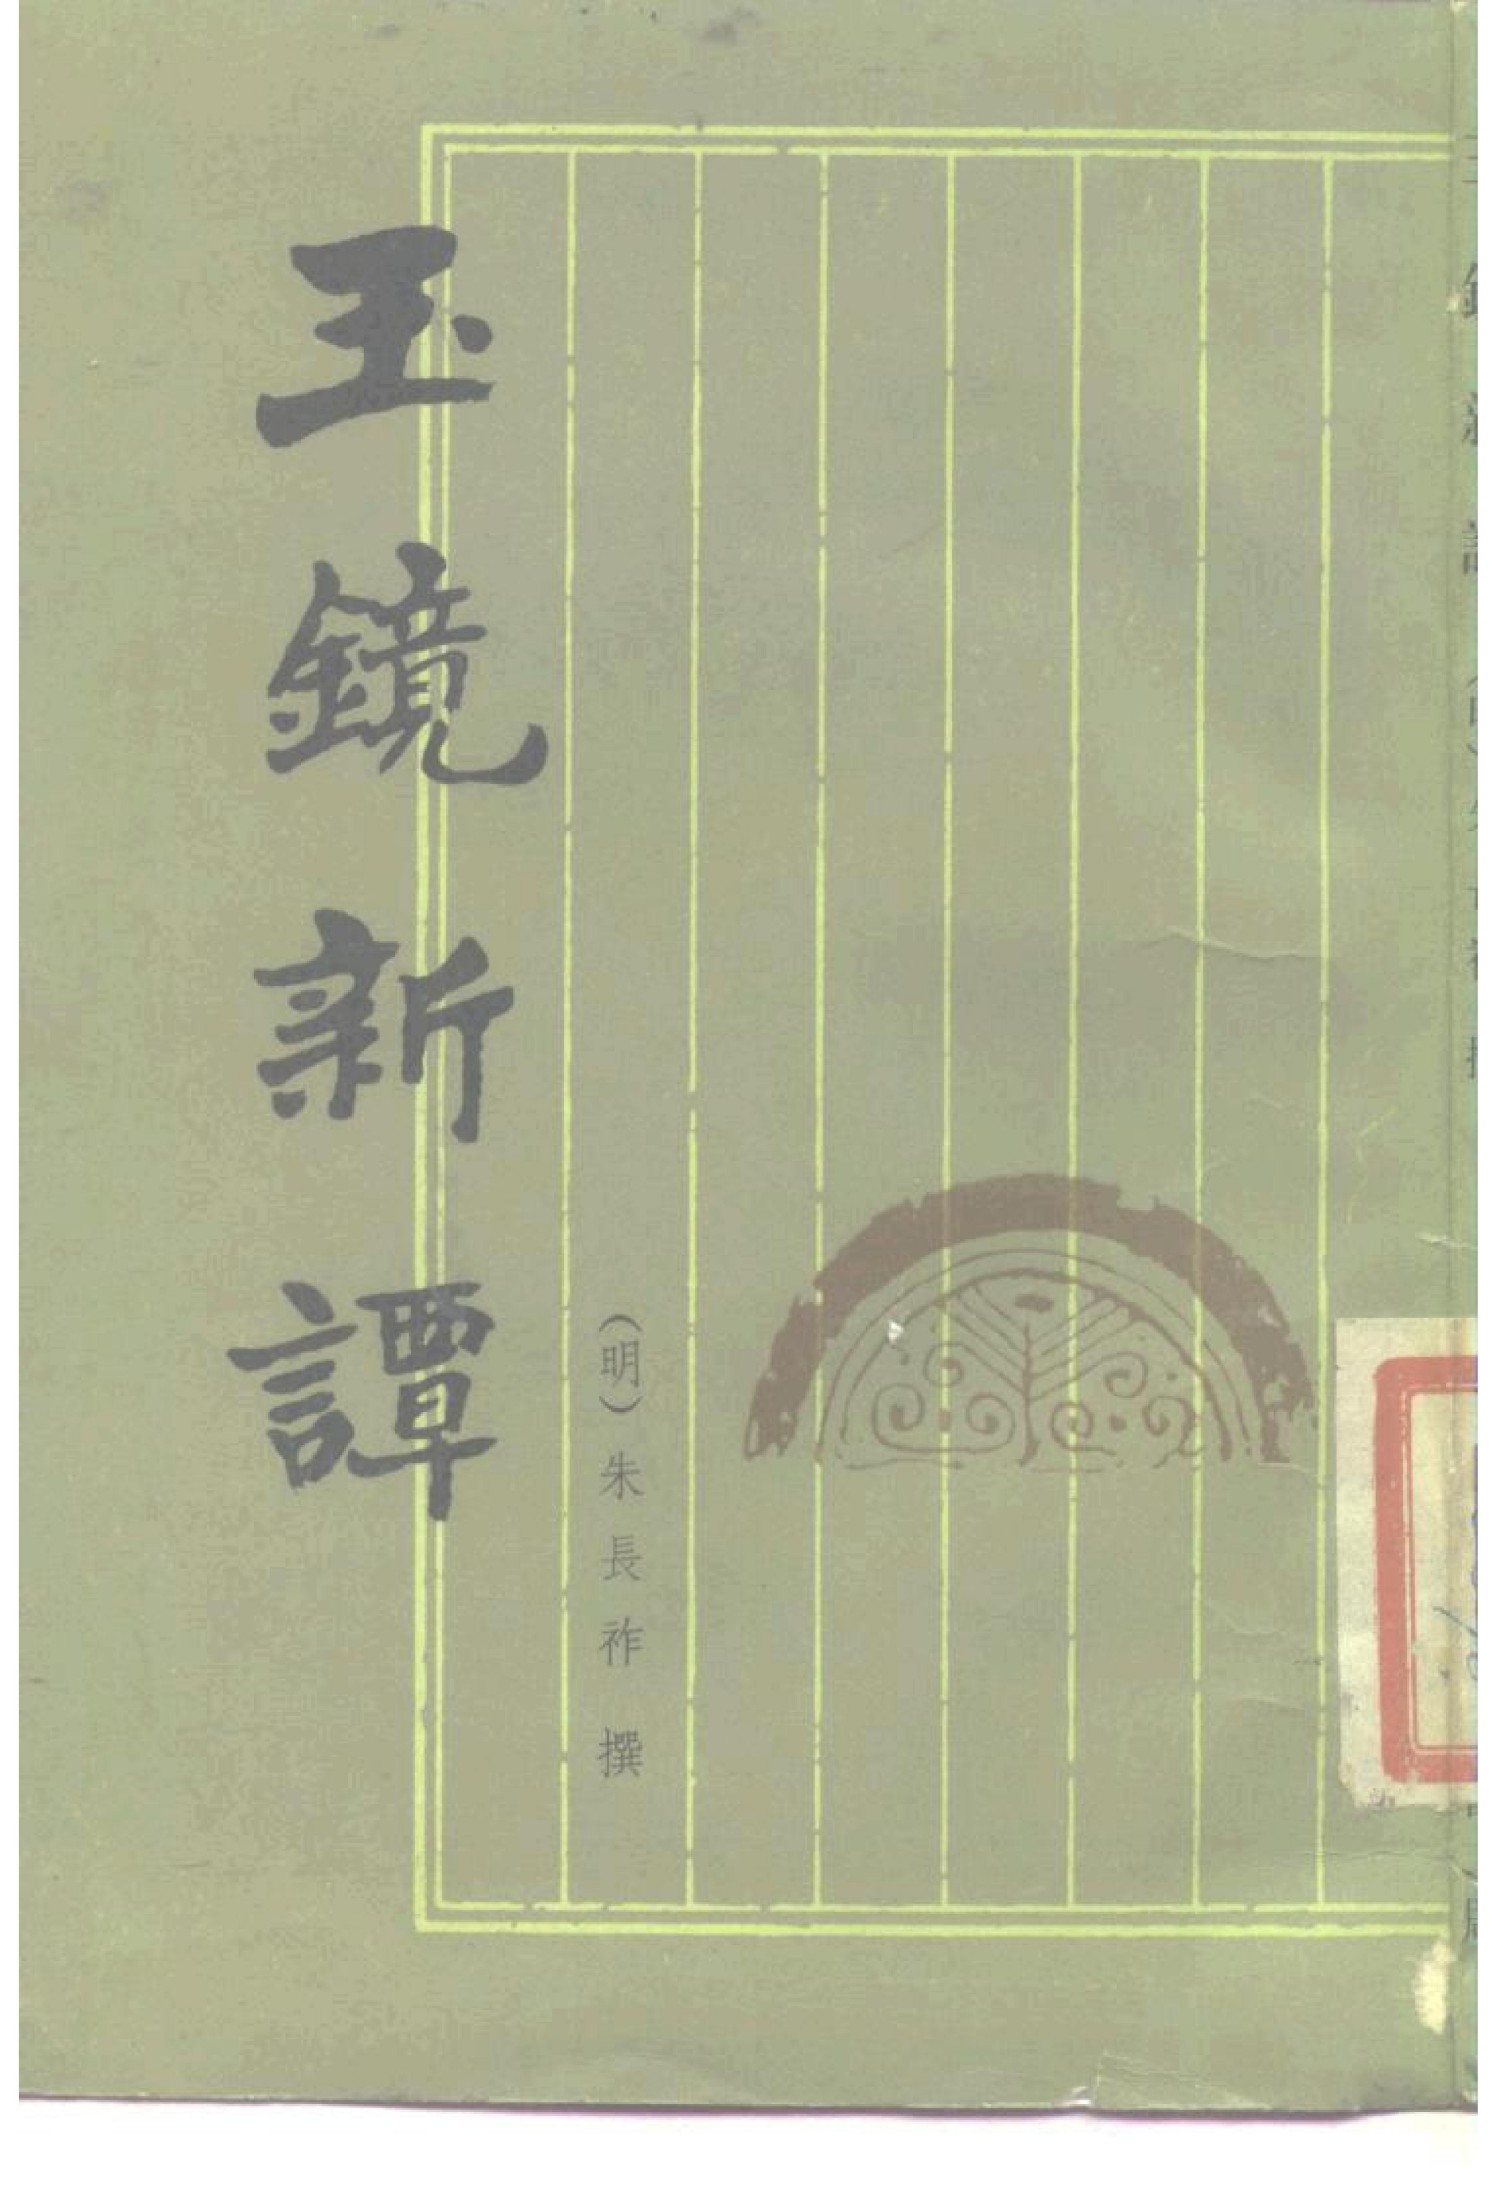 玉鏡新譚
(明)朱長祚撰